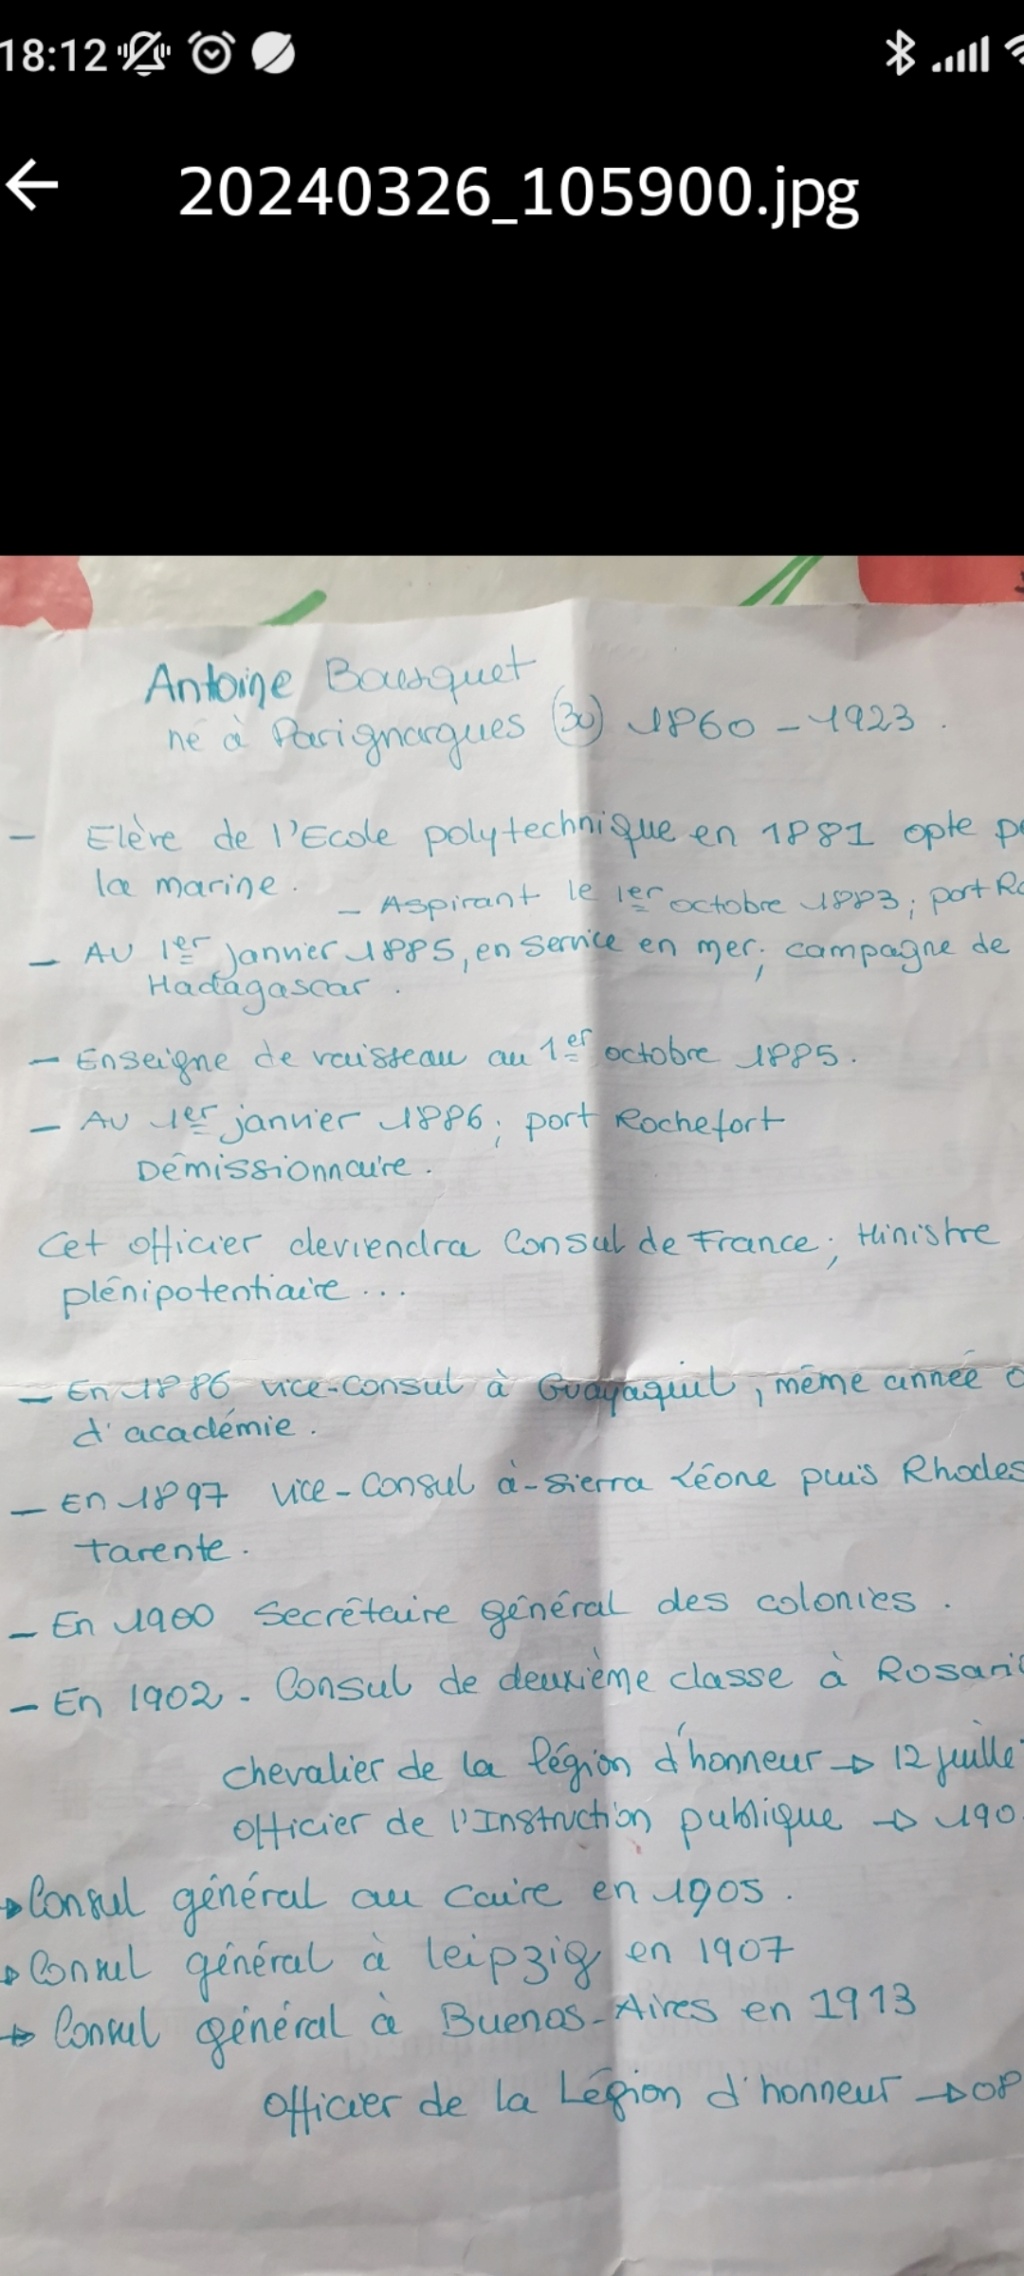 18:12
20240326_105900.jpg
Antoine Bousquet
né à Parignargues (30) 1860 - 1923.
- Elève de l'Ecole polytechnique en 1881 opte
la marine.
- Aspirant le 1er octobre 1883; port
- Au 1er janvier 1885, en service en mer; campagne de
Madagascar.
- Enseigne de vaisseau au 1er octobre 1885.
- Au 1er janvier 1886; port Rochefort
Démissionnaire.
Cet officier deviendra Consul de France; Ministre
plénipotentiaire...
- En 1886 vice-consul à Guayaquil, même année
d'académie.
- En 1897 vice-consul à-Sierra Léone puis Rhodes
Tarente.
- En 1900 Secrétaire général des colonies.
- En 1902. Consul de deuxième classe à Rosari
chevalier de la légion d'honneur → 12 juille
Officier de l'Instruction publique → 190
→ Consul général au Caire en 1905.
→ Consul général à Leipzig en 1907
→ Consul général à Buenos-Aires en 1913
Officier de la Légion d'honneur → 08